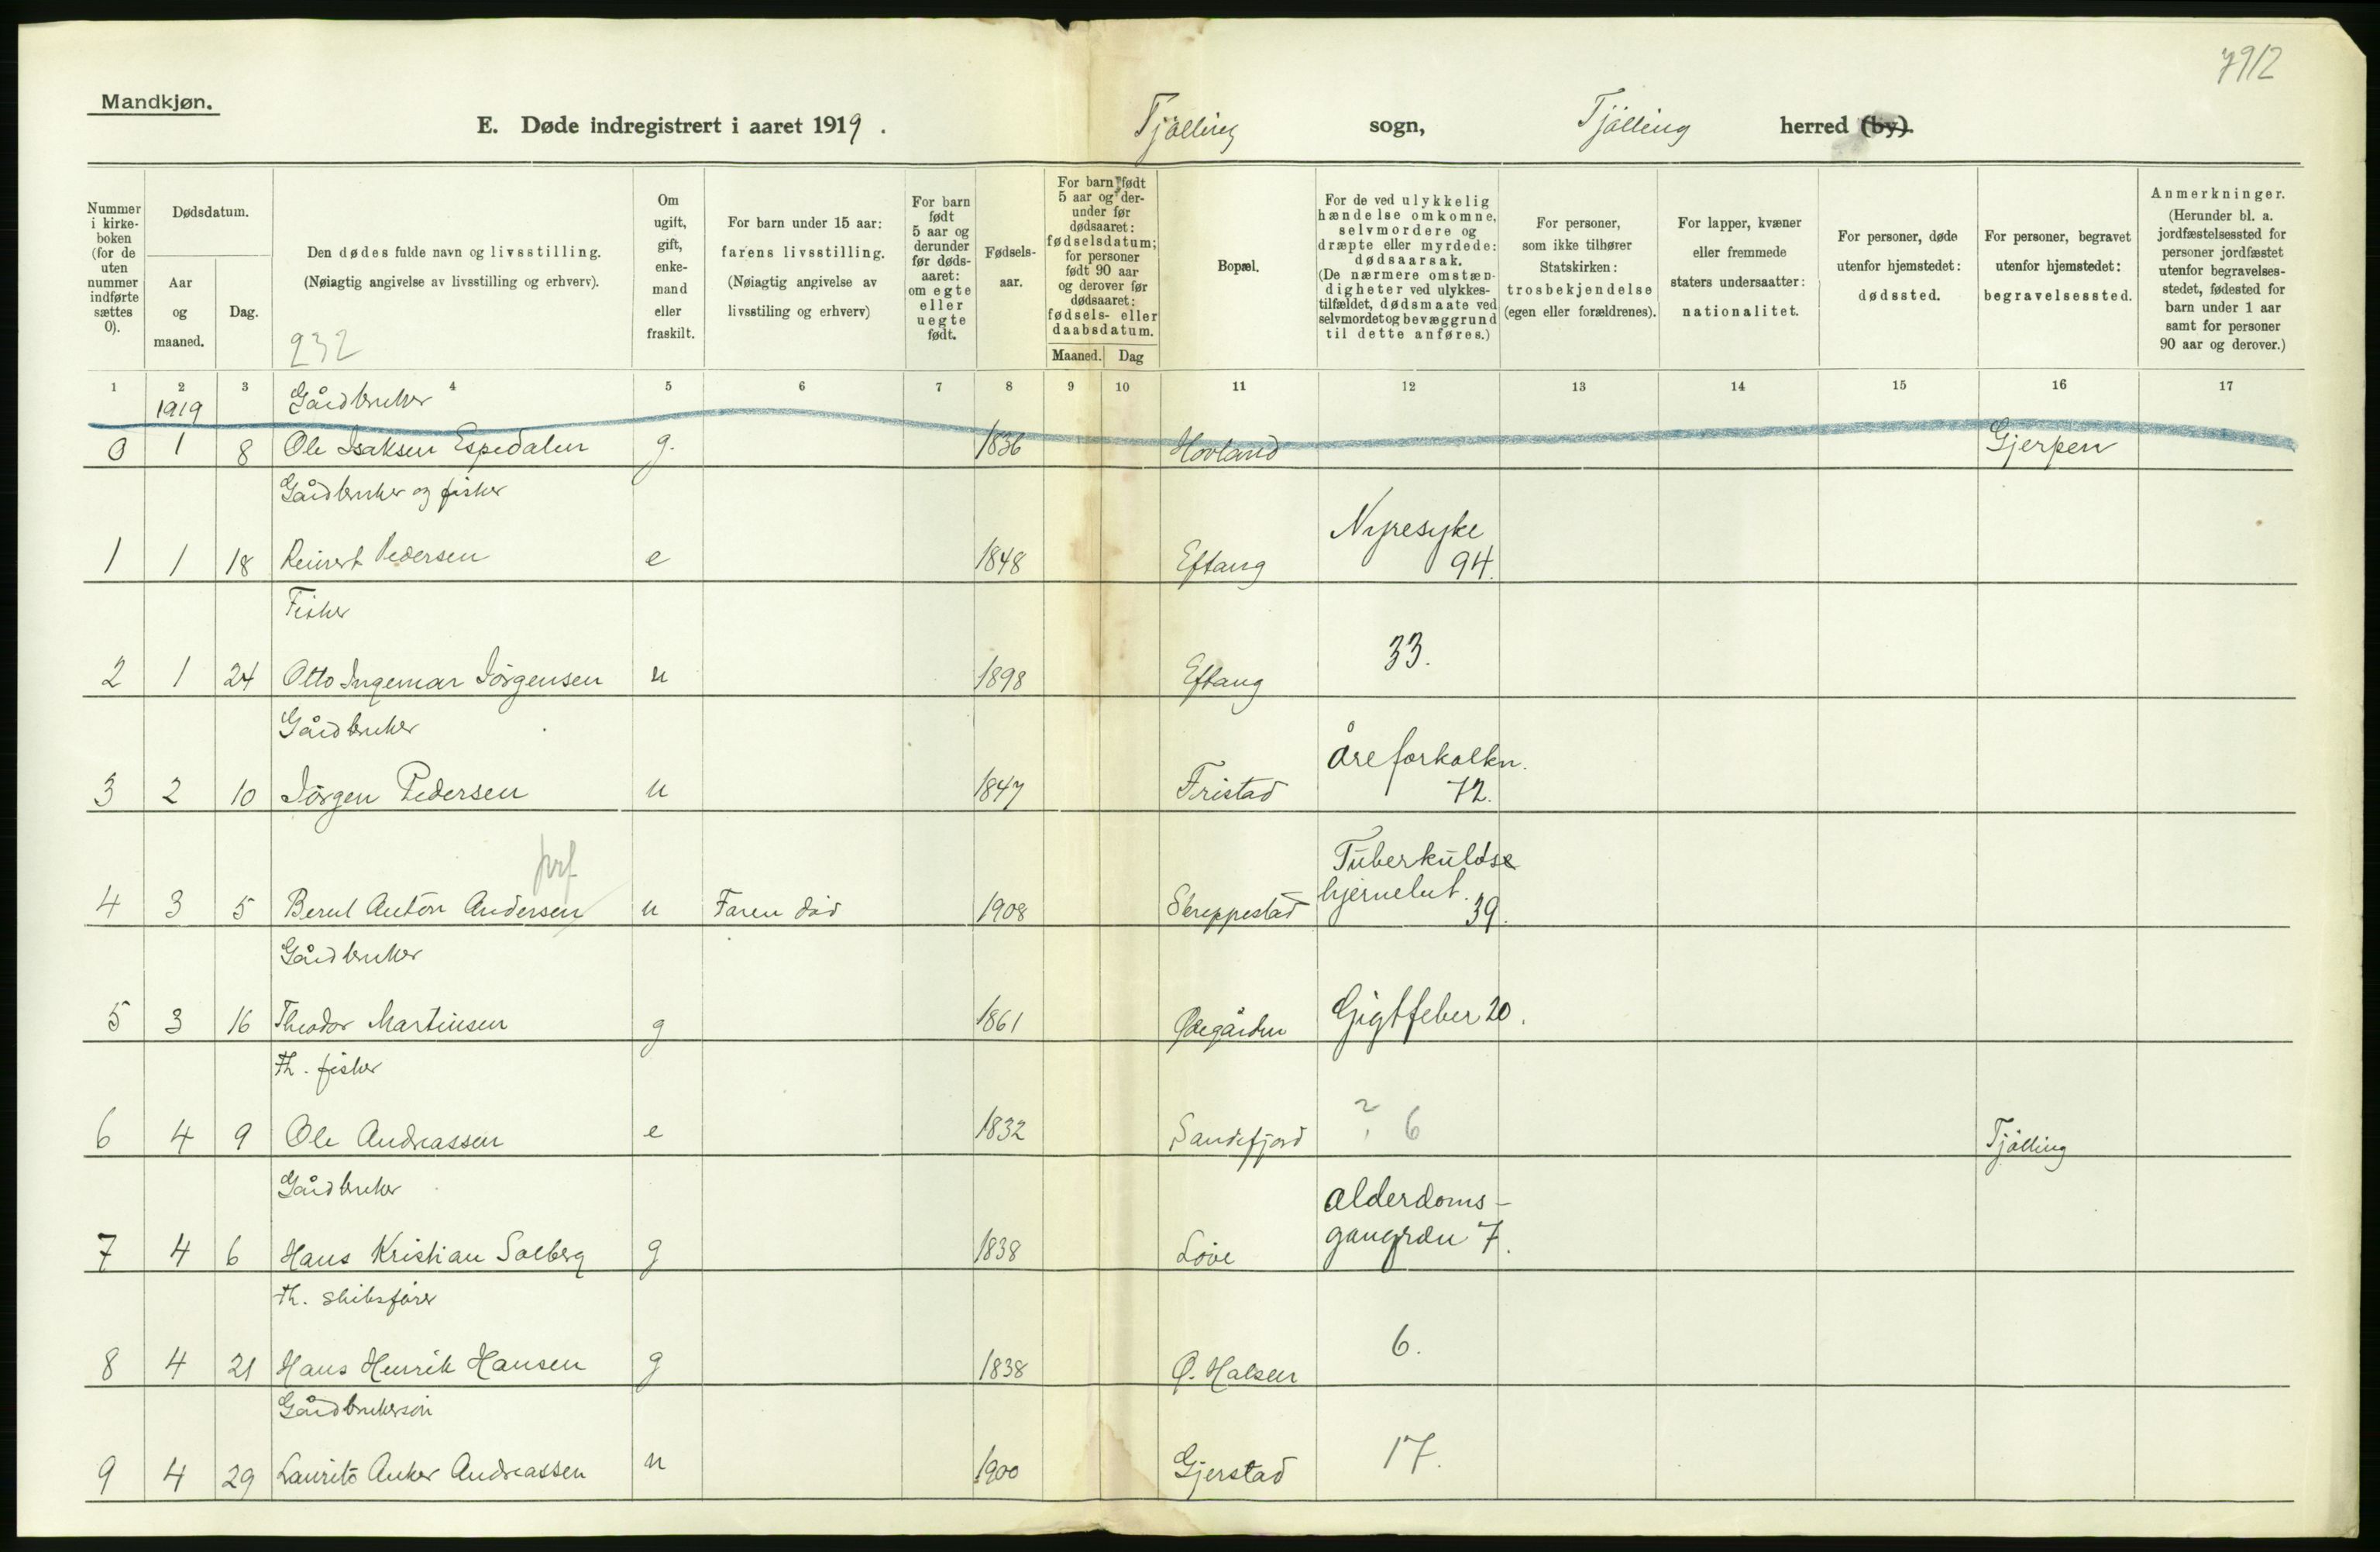 7912
Mandkjøn.
E. Døde indregistrert i aaret 1919. Tjølling sogn, Tjølling herred (by).
Nummer i kirke- boken (for de uten nummer indførte sættes 0).
Dødsdatum.
Aar og maaned.
Dag.
Den dødes fulde navn og livsstilling.
(Nøiagtig angivelse av livsstilling og erhverv).
232
Om ugift, gift, enke- mand eller fraskilt.
For barn under 15 aar:
farens livsstilling.
(Nøiagtig angivelse av
livsstiling og erhverv)
For barn født 5 aar og derunder før døds- aaret: om egte eller uegte født.
Fødsels- aar.
For barn født 5 aar og der- under før dødsaaret: fødselsdatum; for personer født 90 aar og derover før dødsaaret: fødsels- eller daabsdatum.
Maaned. Dag
Bopæl.
For de ved ulykkelig hændelse omkomne, selvmordere og dræpte eller myrdede: dødsaarsak. (De nærmere omstæn- digheter ved ulykkes- tilfældet, dødsmaate ved selvmordet og bevæggrund til dette anføres.)
For personer, som ikke tilhører Statskirken: trosbekjendelse (egen eller forældrenes).
For lapper, kvæner eller fremmede staters undersaatter: nationalitet.
For personer, døde utenfor hjemstedet: dødssted.
For personer, begravet utenfor hjemstedet: begravelsessted.
Anmerkninger. (Herunder bl. a. jordfæstelsessted for personer jordfæstet utenfor begravelses- stedet, fødested for barn under 1 aar samt for personer 90 aar og derover.)
1 2 3 4 5 6 7 8 9 10 11 12 13 14 15 16 17
1919 Gårdbruker
0 1 8 Ole Isaksen Espedalen g. 1836 Hovland Gjerpen
Gårdbruker og fisker
1 1 18 Reinert Pedersen e 1848 Eftang Nyresyke 94.
Fisker
2 1 24 Otto Ingemar Jörgensen u 1898 Eftang 33.
Gårdbruker
3 2 10 Jörgen Pedersen u 1847 Fristad Åreforkalkn. 72.
4 3 5 Bernt Anton Andersen u Faren död 1908 Skreppestad Tuberkuløse hjernebet. 39.
Gårdbruker
5 3 16 Theodor Martinsen g 1861 Ødegården Gigtfeber 20.
Fh. fisker
6 4 9 Ole Andreassen e 1832 Sandefjord ? 6 Tjölling
Gårdbruker
7 4 6 Hans Kristian Solberg g 1838 Löve Alderdoms- gangræn 7.
Fh. skibsfører
8 4 21 Hans Henrik Hansen g 1838 Ø. Halsen 6.
Gårdbrukersön
9 4 29 Laurits Anker Andreassen u 1900 Gjerstad 17.